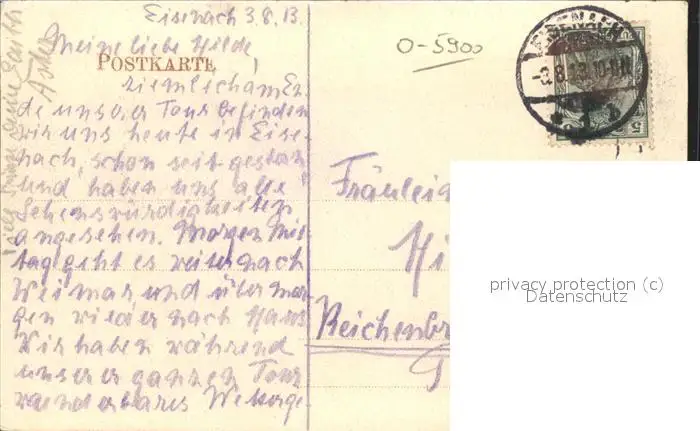 Eisenach 3.8.13.
Meine liebe Hilde,
POSTKARTE
ziemlich am En-
de unsrer Tour befinden
wir uns heute in Eise-
nach, schon seit gestern
und haben uns alle
Sehenswürdigkeiten
angesehen. Morgen Mit-
tag geht es weiter nach
Weimar und über mor-
gen wieder nach Haus
Wir haben während
unserer ganzen Tour
wunderbares Wetter ge-
Viele Grüsse
O-5900
EISENACH
-3.8.13.10-11
5
Fräulein
Hi
Reichenbr
privacy protection (c)
Datenschutz